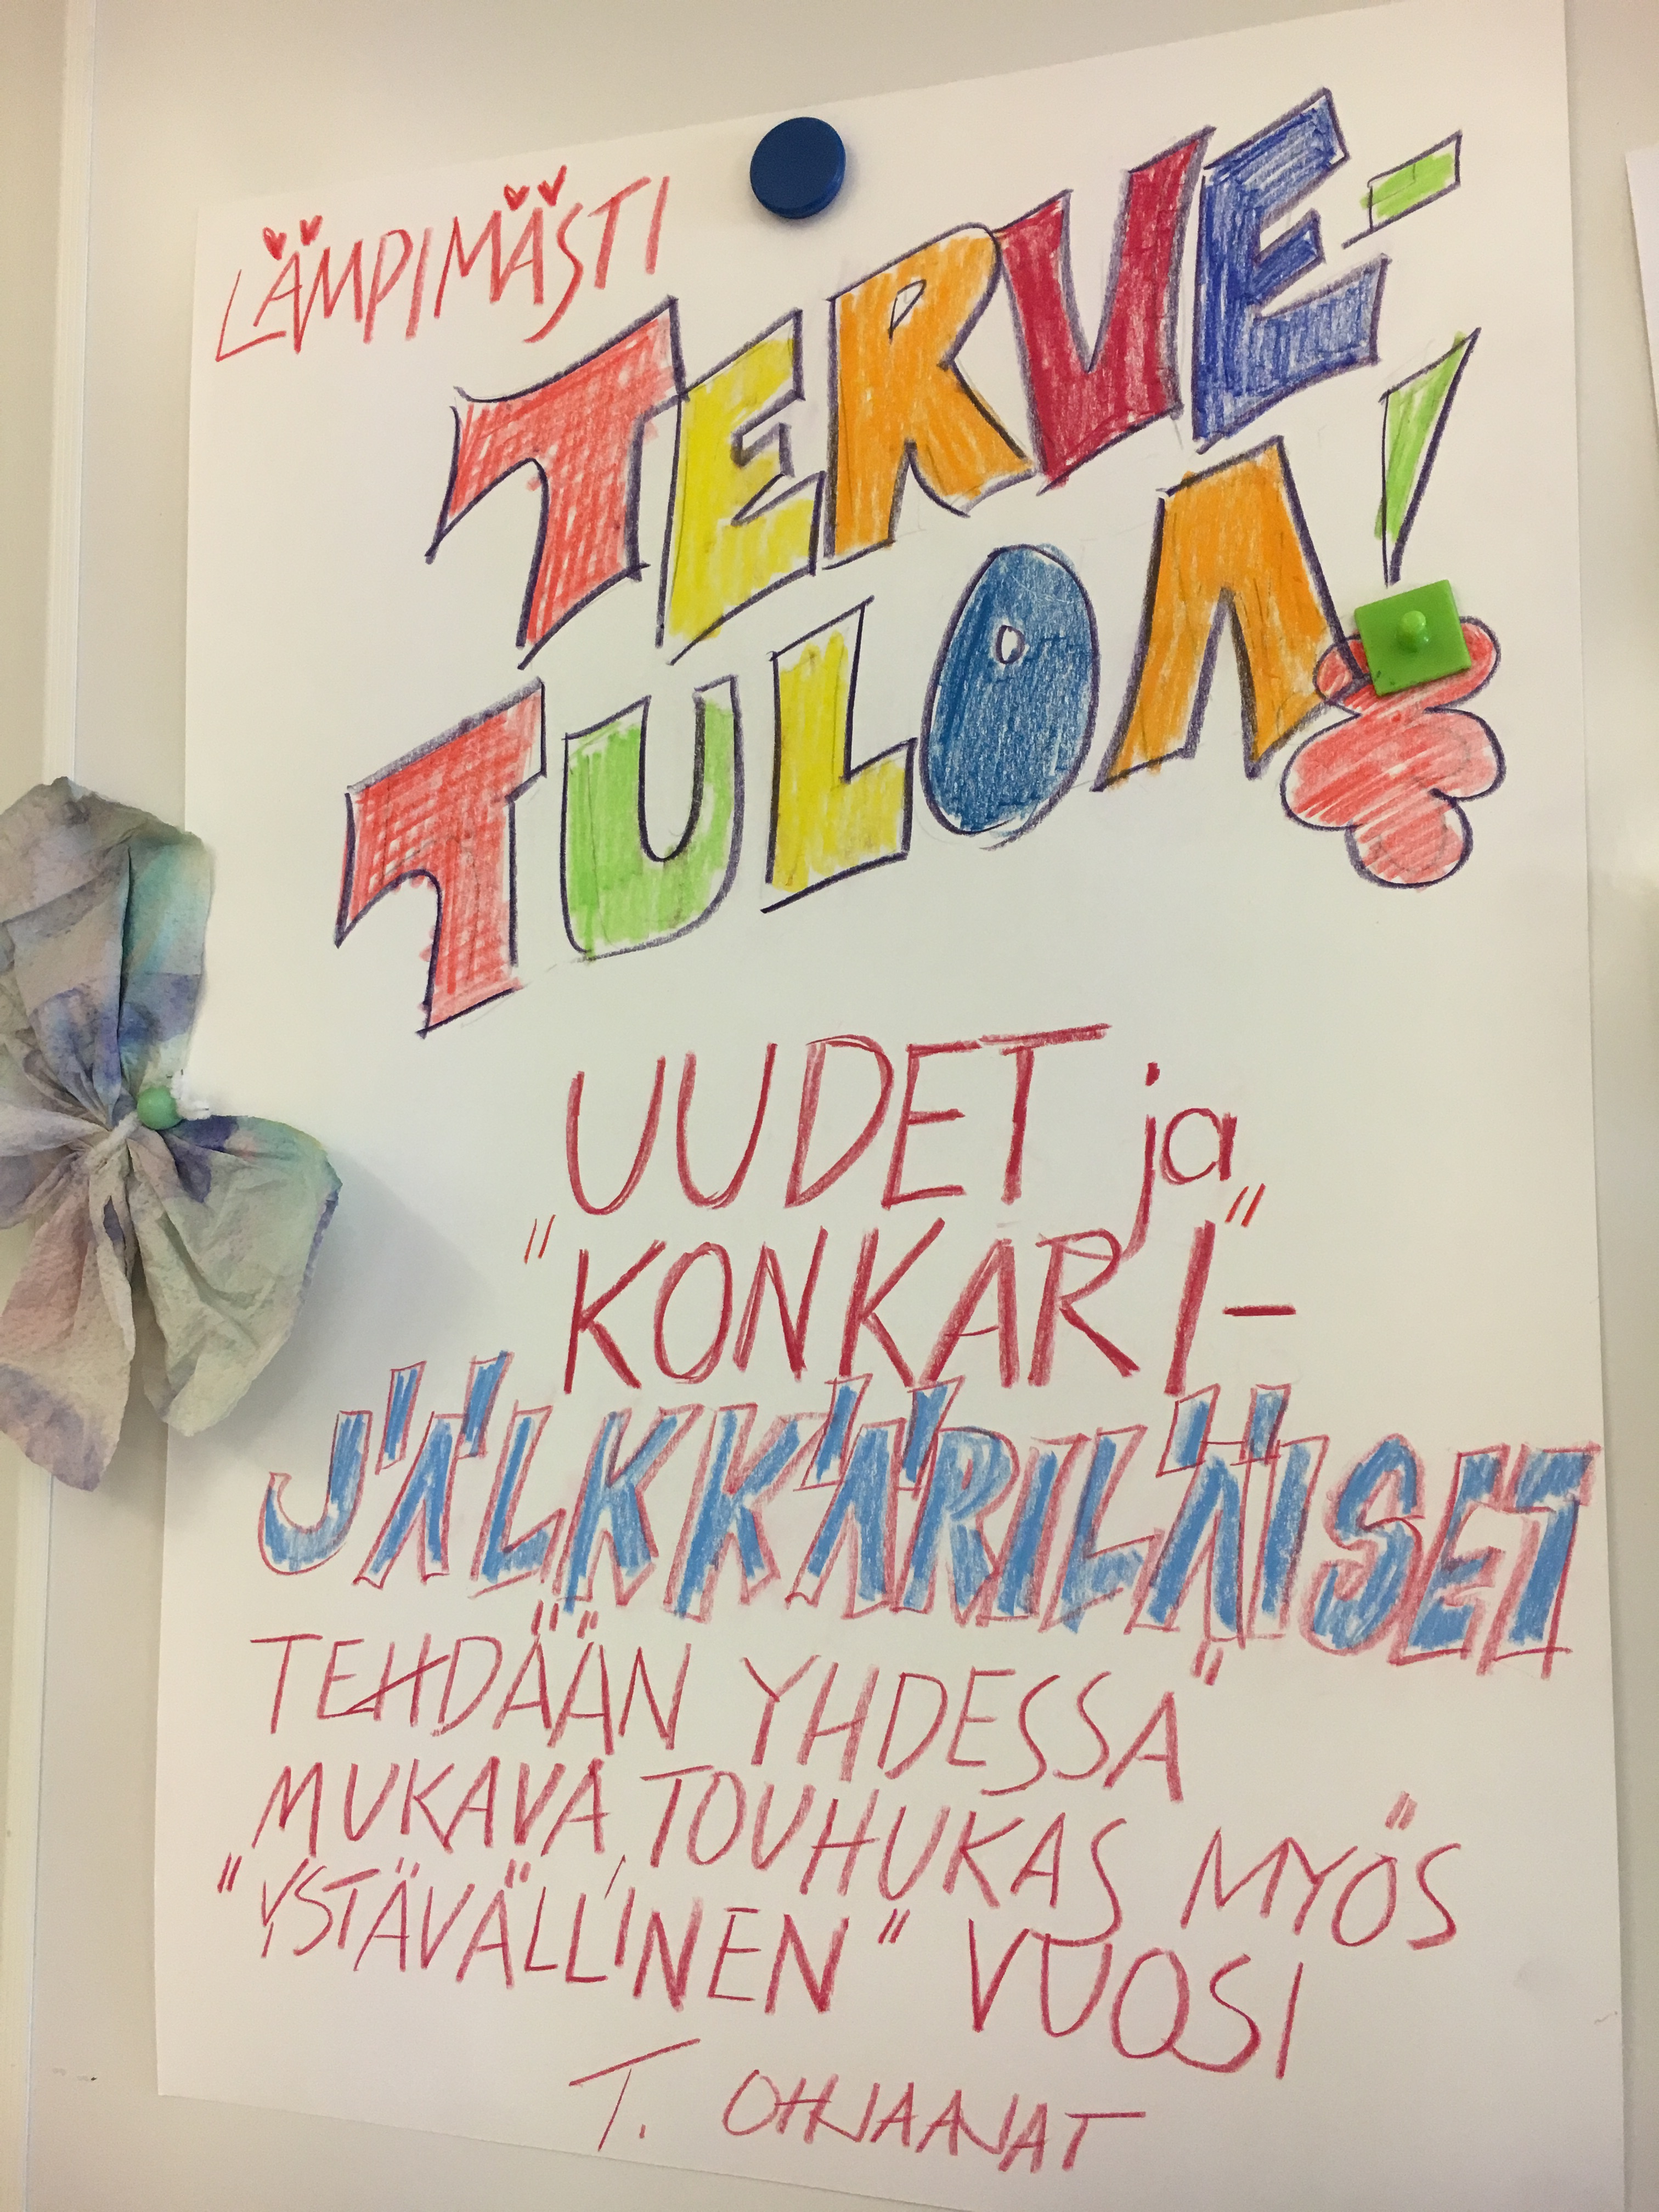 LÄMPIMÄSTI
TERVE-
TULOA!
UUDET ja
"KONKARI"-
JÄLKKÄRILÄISET
TEHDÄÄN YHDESSÄ
MUKAVA, TOUHUKAS MYÖS
"YSTÄVÄLLINEN" VUOSI
T. OHJAAJAT